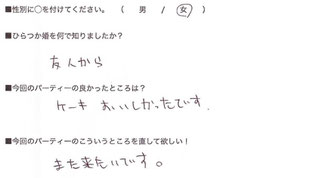 ■性別に○を付けてください。 （ 男 / 女 ）
■ひらつか婚を何で知りましたか？
友人から
■今回のパーティーの良かったところは？
ケーキ おいしかったです.
■今回のパーティーのこういうところを直して欲しい！
また来たいです。